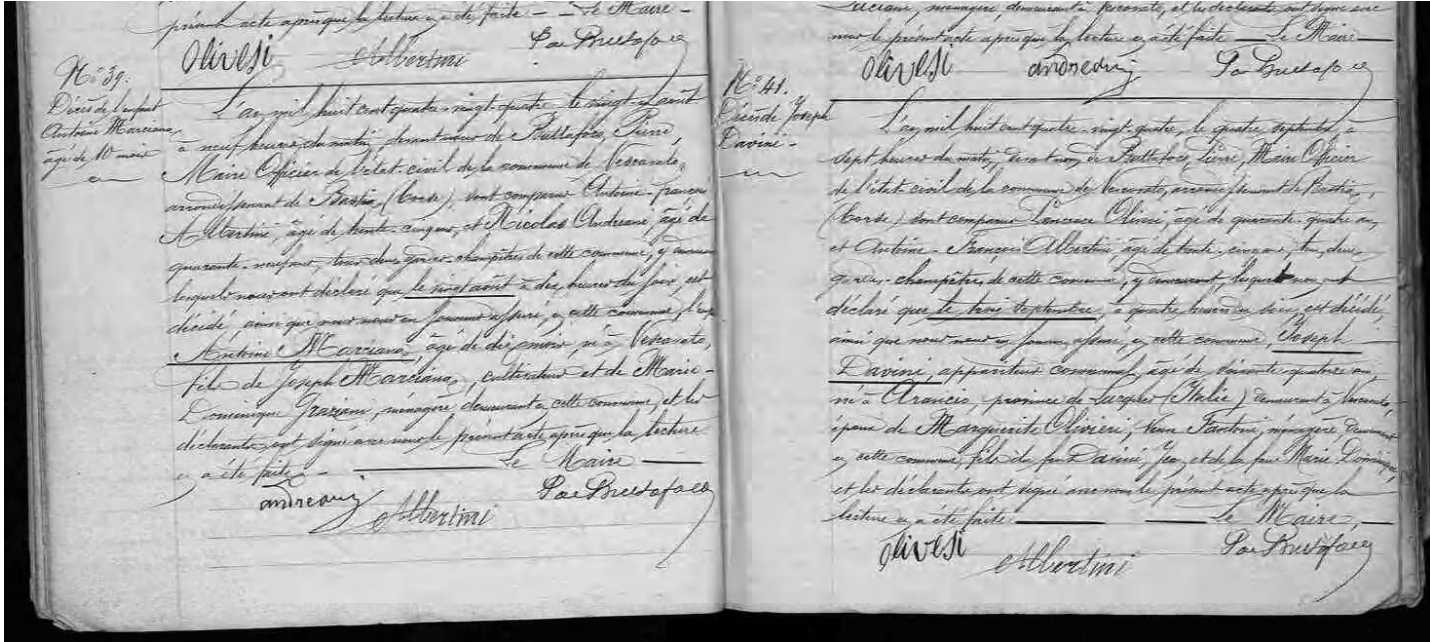 présent acte après que la lecture en a été faite — Le Maire —
Olivesi Albertini P. de Buttafoco
N° 39.
Décès de l'enfant
Antoine Marciana,
âgé de 10 mois
L'an mil huit cent quatre-vingt-quatre le vingt-un août
à neuf heures du matin, devant nous de Buttafoco, Pierre,
Maire Officier de l'état-civil de la commune de Vescovato,
arrondissement de Bastia, (Corse), sont comparus Antoine-françois
Albertini, âgé de trente-cinq ans, et Nicolas Andreani, âgé de
quarante-neuf ans, tous deux gardes-champêtres de cette commune, y demeurant
lesquels nous ont déclaré que le vingt août à dix heures du soir, est
décédé, ainsi que nous nous en sommes assuré, en cette commune, l'enfant
Antoine Marciana, âgé de dix mois, né à Vescovato,
fils de Joseph Marciana, cultivateur et de Marie-
Dominique Graziani, ménagère demeurant en cette commune, et les
déclarants ont signé avec nous le présent acte après que la lecture
en a été faite — Le Maire —
andreani Albertini P. de Buttafoco
Luciani, ménagère, demeurant à Vescovato, et les déclarants ont signé avec
nous le présent acte après que la lecture en a été faite — Le Maire —
Olivesi andreani P. de Buttafoco
N° 41.
Décès de Joseph
Davini -
L'an mil huit cent quatre-vingt-quatre, le quatre septembre, à
sept heures du matin, devant nous de Buttafoco, Pierre, Maire Officier
de l'état-civil de la commune de Vescovato, arrondissement de Bastia,
(Corse) sont comparus Olivesi, âgé de quarante-quatre ans,
et Antoine-François Albertini, âgé de trente-cinq ans, tous deux
gardes-champêtres de cette commune, y demeurant, lesquels nous ont
déclaré que le trois septembre, à quatre heures du soir, est décédé,
ainsi que nous nous en sommes assuré, en cette commune, Joseph
Davini, appariteur communal, âgé de soixante quatorze ans,
né à province de (Italie) demeurant à Vescovato,
époux de Marguerite Olivieri, Fantoni, ménagère, demeurant
en cette commune, fils de feu Davini, Jean et de la feue Marie Dominique,
et les déclarants ont signé avec nous le présent acte après que la
lecture en a été faite — Le Maire, —
Olivesi Albertini P. de Buttafoco